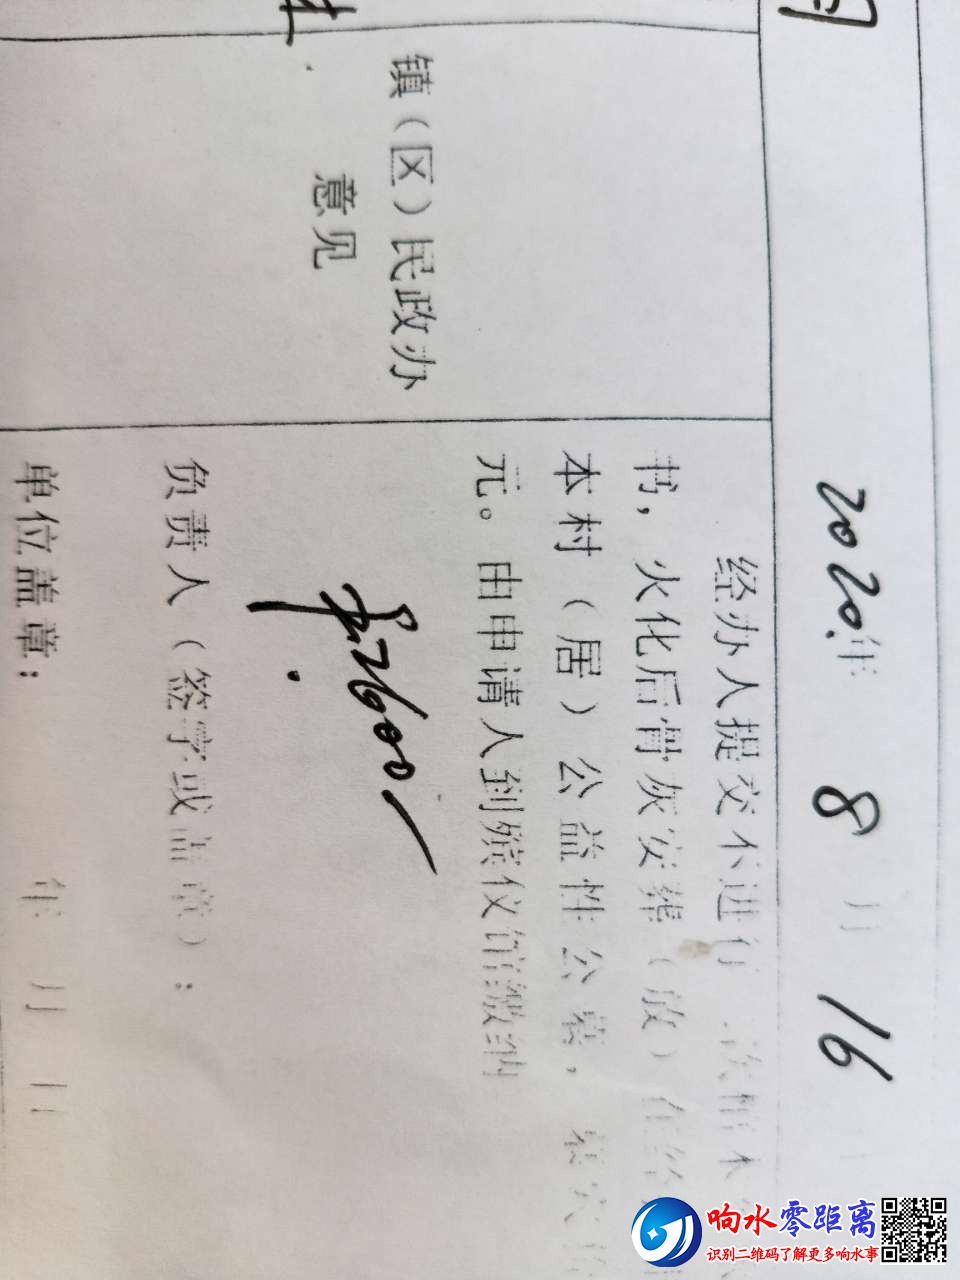 2020年 8月 16
镇（区）民政办
意见
经办人提交不进行二次棺木
书，火化后骨灰安葬（放）在经
本村（居）公益性公墓，墓穴
元。由申请人到殡仪馆缴纳
2600
负责人（签字或盖章）：
单位盖章： 年 月 日
响水零距离
识别二维码了解更多响水事